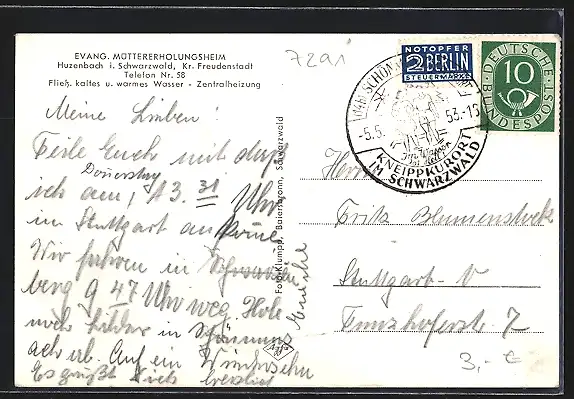 EVANG. MÜTTERERHOLUNGSHEIM
Huzenbach i. Schwarzwald, Kr. Freudenstadt
Telefon Nr. 58
Fließ. kaltes u. warmes Wasser - Zentralheizung
7291
NOTOPFER
2 BERLIN
STEUERMARKE
DEUTSCHE
BUNDESPOST
10
-5.5.
53.-12
KNEIPPKURORT
IM SCHWARZWALD
Meine Lieben!
Teile Euch mit daß
Donnerstag
ich am, 13.31 Uhr
in Stuttgart ankomme
Wir fahren in
berg 9 47 Uhr weg. Hole
noch Bilder in
ab. Auf ein Wiedersehn
Es grüßt Euch herzlich
Foto-Klumpp, Baiersbronn, Schwarzwald
Fritz Blumenstock
Stuttgart-V
7
3,- €